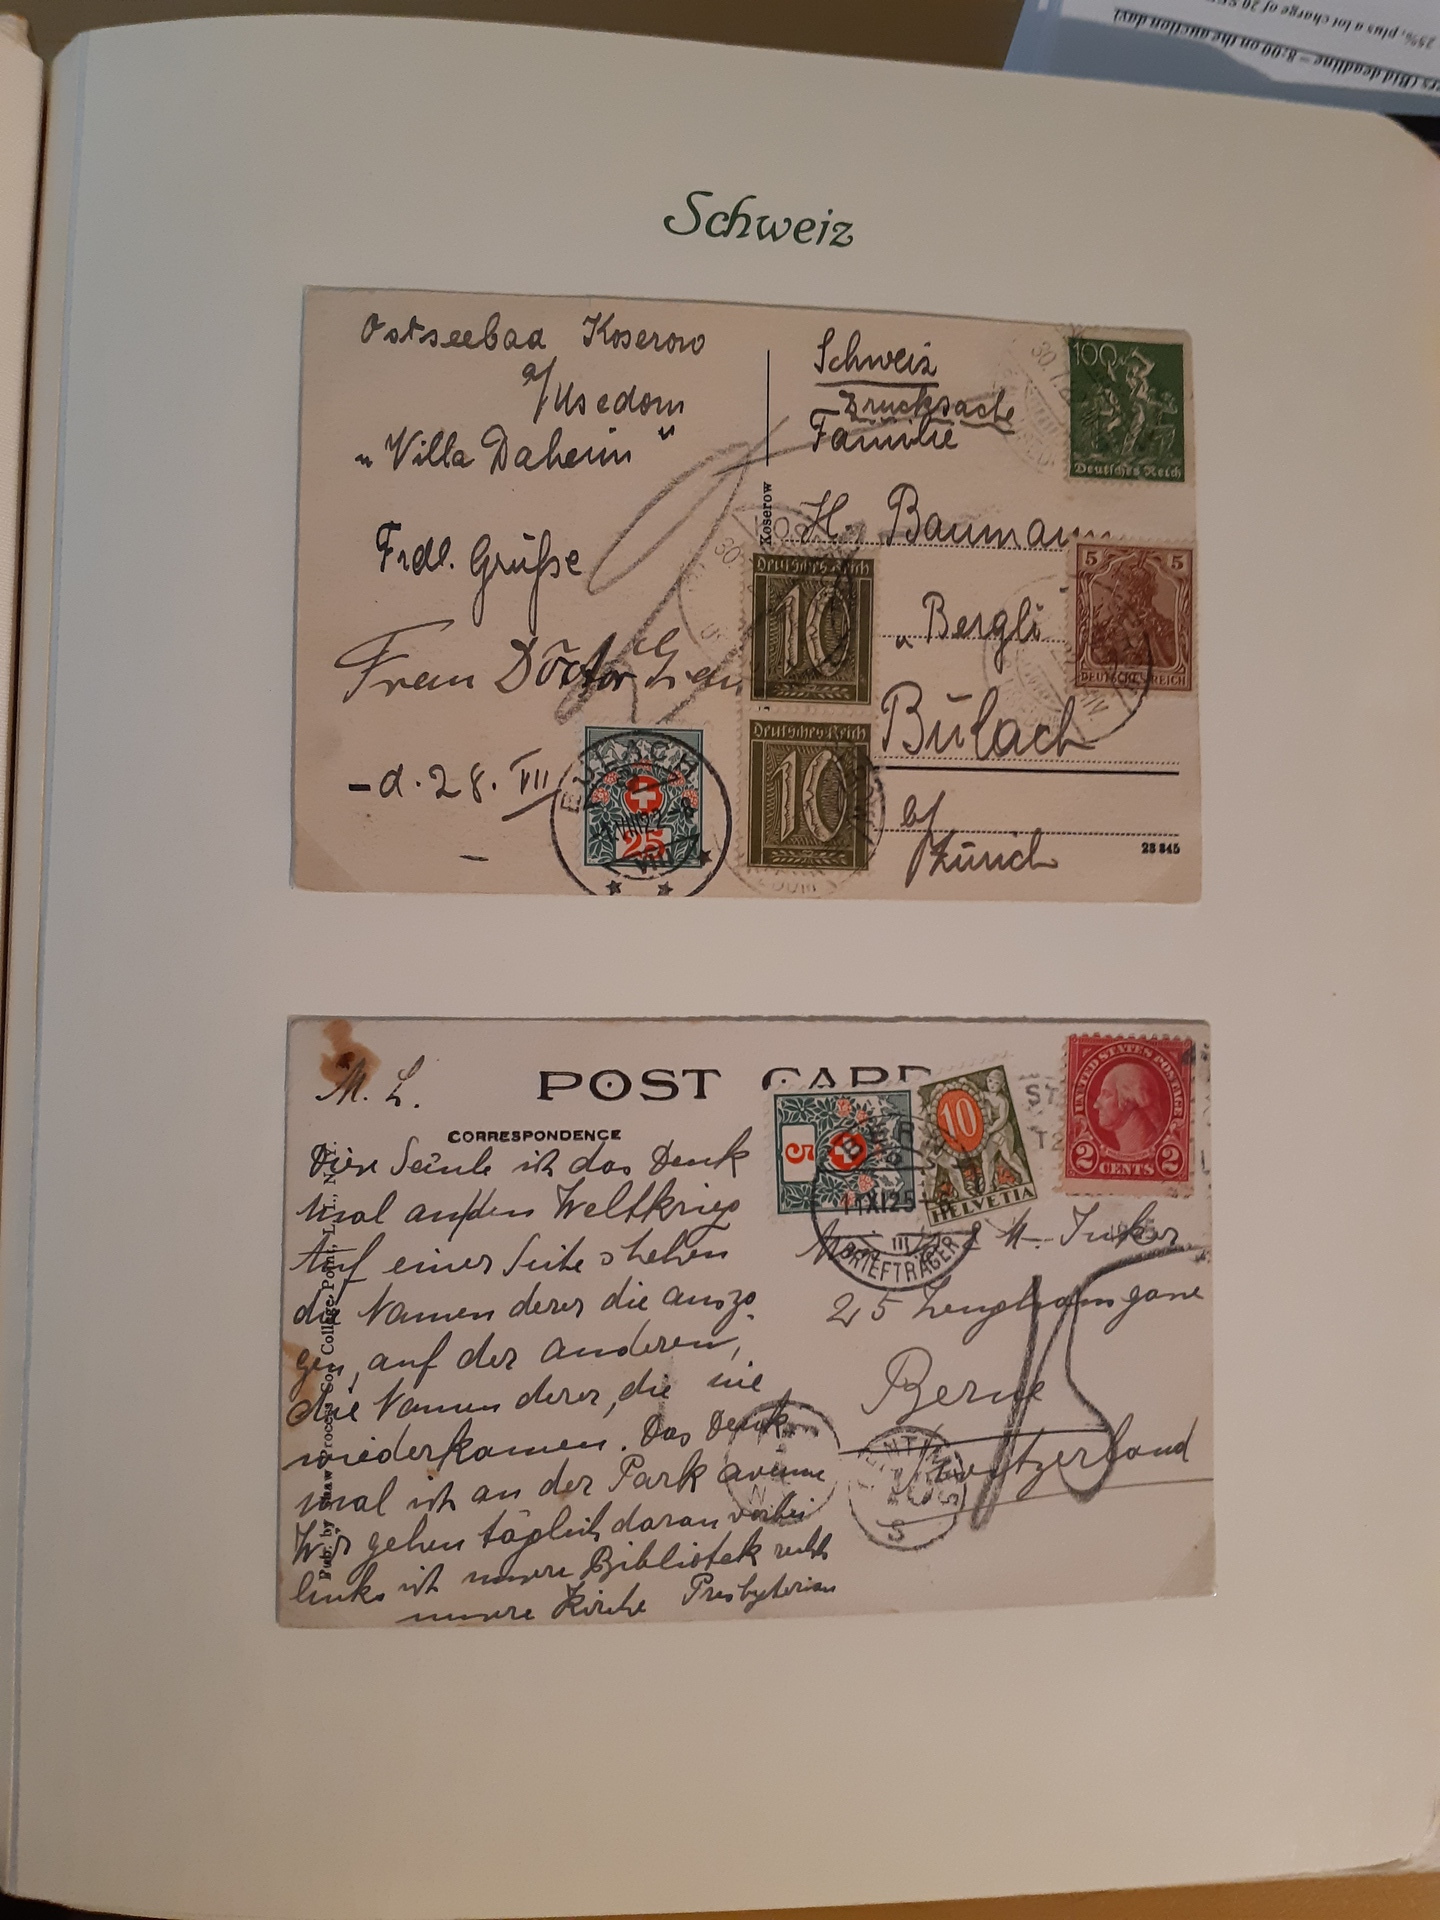 Schweiz
Ostseebad Koserow
a/Usedom
„Villa Daheim"
Frdl. Grüße
Frau Doctor
- d. 28. VII
Schweiz
Drucksache
Familie
H. Baumann
„Bergli
Bülach
b/
Zürich
Koserow
23 845
100
Deutsches Reich
5 5
DEUTSCHES REICH
Deutsches Reich
10
Deutsches Reich
10
25
BÜLACH
VIII 22 - 8
M. L.
POST CARD
CORRESPONDENCE
Diese Säule ist das Denk
mal an den Weltkrieg
Auf einer Seite stehen
die Namen derer die auszo
gen, auf der anderen,
die Namen derer, die nie
wiederkamen. Das Denk
mal ist an der Park avenue
Wir gehen täglich daran vorbei
links ist unsere Bibliotek rechts
unsere Kirche Presbyterian
Pub. by Process Co., College Point, L. I., N. Y.
5
10
HELVETIA
BERN
11 XI 25
III
BRIEFTRÄGER
UNITED STATES POSTAGE
2 CENTS 2
& M.
25
Berne
Switzerland
15
CENTIMES
S
ers (Bid deadline = 8:00 on the auction day)
25%, plus a lot charge of 20